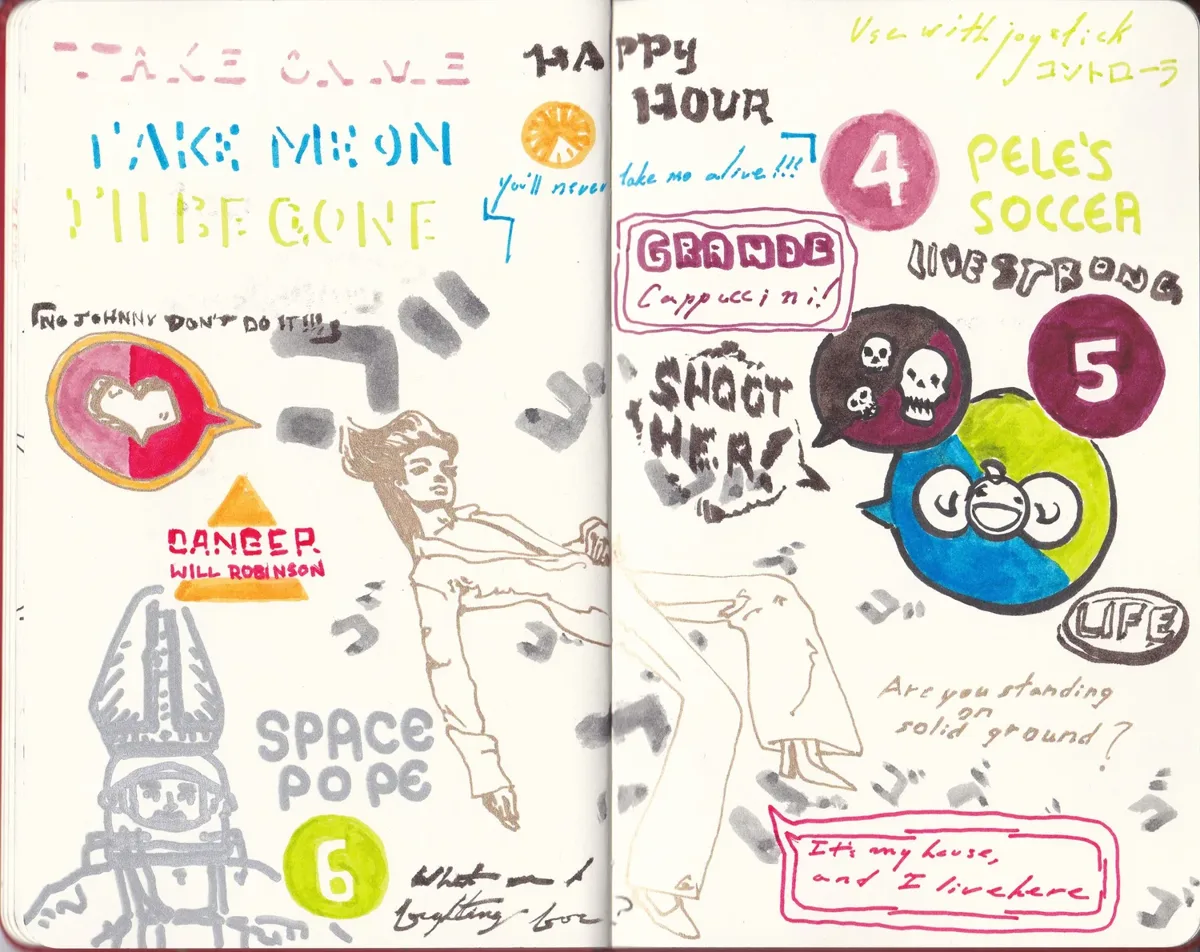 TAKE ON ME
TAKE ME ON
I'll BE GONE
HAPPY
HOUR
You'll never take me alive!!!
Use with joystick
コントローラ
4
PELE'S
SOCCER
GRANDE
Cappuccini!
LIVESTRONG
NO JOHNNY DON'T DO IT!!!
SHOOT
HER!
5
DANGER
WILL ROBINSON
LIFE
Are you standing
on
solid ground?
SPACE
POPE
6
What am I
fighting for?
It's my house,
and I live here